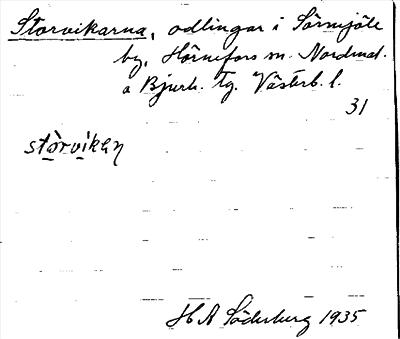 Storvikarna, odlingar i Sörmjöle
by, Hörnefors sn. Nordmal.
o Bjurh. tg. Västerb. l.
31
stòrvikaɳ
H A Söderberg 1935